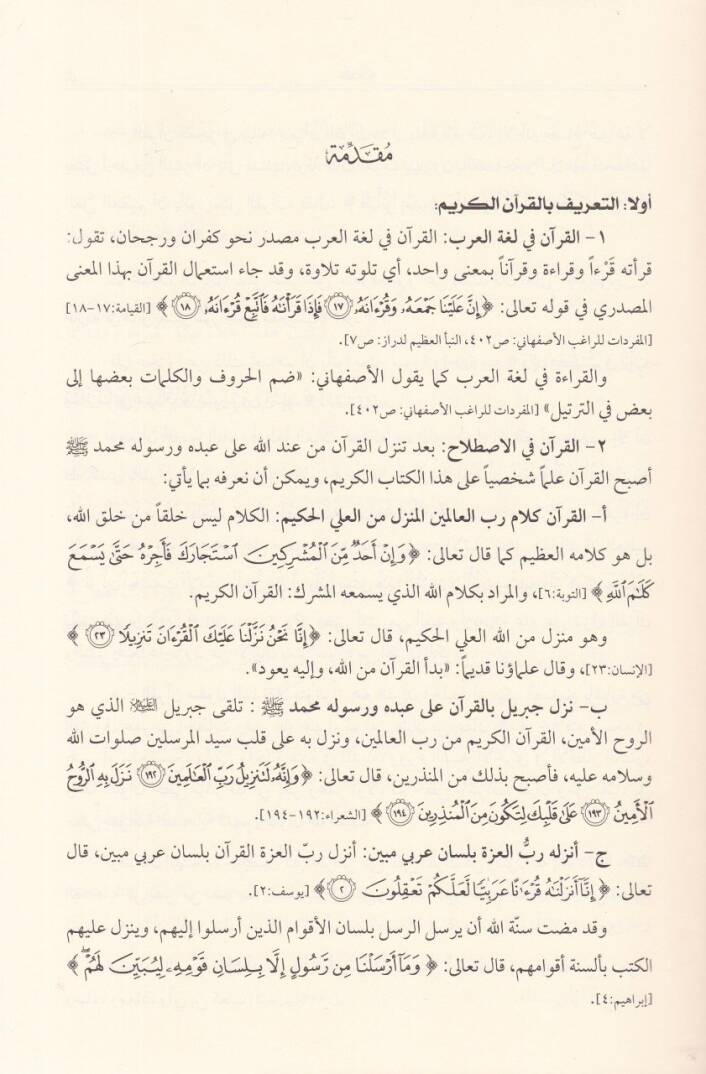 مُقَدِّمة
أولا: التعريف بالقرآن الكريم:
١- القرآن في لغة العرب: القرآن في لغة العرب مصدر نحو كفران ورجحان، تقول:
قرأته قَرْءاً وقراءة وقرآناً بمعنى واحد، أي تلوته تلاوة، وقد جاء استعمال القرآن بهذا المعنى
المصدري في قوله تعالى: ﴿إِنَّ عَلَيْنَا جَمْعَهُۥ وَقُرْءَانَهُۥ ۝١٧ فَإِذَا قَرَأْنَٰهُ فَٱتَّبِعْ قُرْءَانَهُۥ ۝١٨﴾ [القيامة:١٧-١٨]
[المفردات للراغب الأصفهاني: ص٤٠٢، النبأ العظيم لدراز: ص٧].
والقراءة في لغة العرب كما يقول الأصفهاني: «ضم الحروف والكلمات بعضها إلى
بعض في الترتيل» [المفردات للراغب الأصفهاني: ص٤٠٢].
٢- القرآن في الاصطلاح: بعد تنزل القرآن من عند الله على عبده ورسوله محمد ﷺ
أصبح القرآن علماً شخصياً على هذا الكتاب الكريم، ويمكن أن نعرفه بما يأتي:
أ- القرآن كلام رب العالمين المنزل من العلي الحكيم: الكلام ليس خلقاً من خلق الله،
بل هو كلامه العظيم كما قال تعالى: ﴿وَإِنْ أَحَدٌ مِّنَ ٱلْمُشْرِكِينَ ٱسْتَجَارَكَ فَأَجِرْهُ حَتَّىٰ يَسْمَعَ
كَلَٰمَ ٱللَّهِ﴾ [التوبة:٦]، والمراد بكلام الله الذي يسمعه المشرك: القرآن الكريم.
وهو منزل من الله العلي الحكيم، قال تعالى: ﴿إِنَّا نَحْنُ نَزَّلْنَا عَلَيْكَ ٱلْقُرْءَانَ تَنزِيلًا ۝٢٣﴾
[الإنسان:٢٣]، وقال علماؤنا قديماً: «بدأ القرآن من الله، وإليه يعود».
ب- نزل جبريل بالقرآن على عبده ورسوله محمد ﷺ : تلقى جبريل عليه السلام الذي هو
الروح الأمين، القرآن الكريم من رب العالمين، ونزل به على قلب سيد المرسلين صلوات الله
وسلامه عليه، فأصبح بذلك من المنذرين، قال تعالى: ﴿وَإِنَّهُۥ لَتَنزِيلُ رَبِّ ٱلْعَٰلَمِينَ ۝١٩٢ نَزَلَ بِهِ ٱلرُّوحُ
ٱلْأَمِينُ ۝١٩٣ عَلَىٰ قَلْبِكَ لِتَكُونَ مِنَ ٱلْمُنذِرِينَ ۝١٩٤﴾ [الشعراء:١٩٢-١٩٤].
ج- أنزله ربُّ العزة بلسان عربي مبين: أنزل ربّ العزة القرآن بلسان عربي مبين، قال
تعالى: ﴿إِنَّآ أَنزَلْنَٰهُ قُرْءَٰنًا عَرَبِيًّا لَّعَلَّكُمْ تَعْقِلُونَ ۝٢﴾ [يوسف:٢].
وقد مضت سنّة الله أن يرسل الرسل بلسان الأقوام الذين أرسلوا إليهم، وينزل عليهم
الكتب بألسنة أقوامهم، قال تعالى: ﴿وَمَآ أَرْسَلْنَا مِن رَّسُولٍ إِلَّا بِلِسَانِ قَوْمِهِۦ لِيُبَيِّنَ لَهُمْ﴾
[إبراهيم:٤].